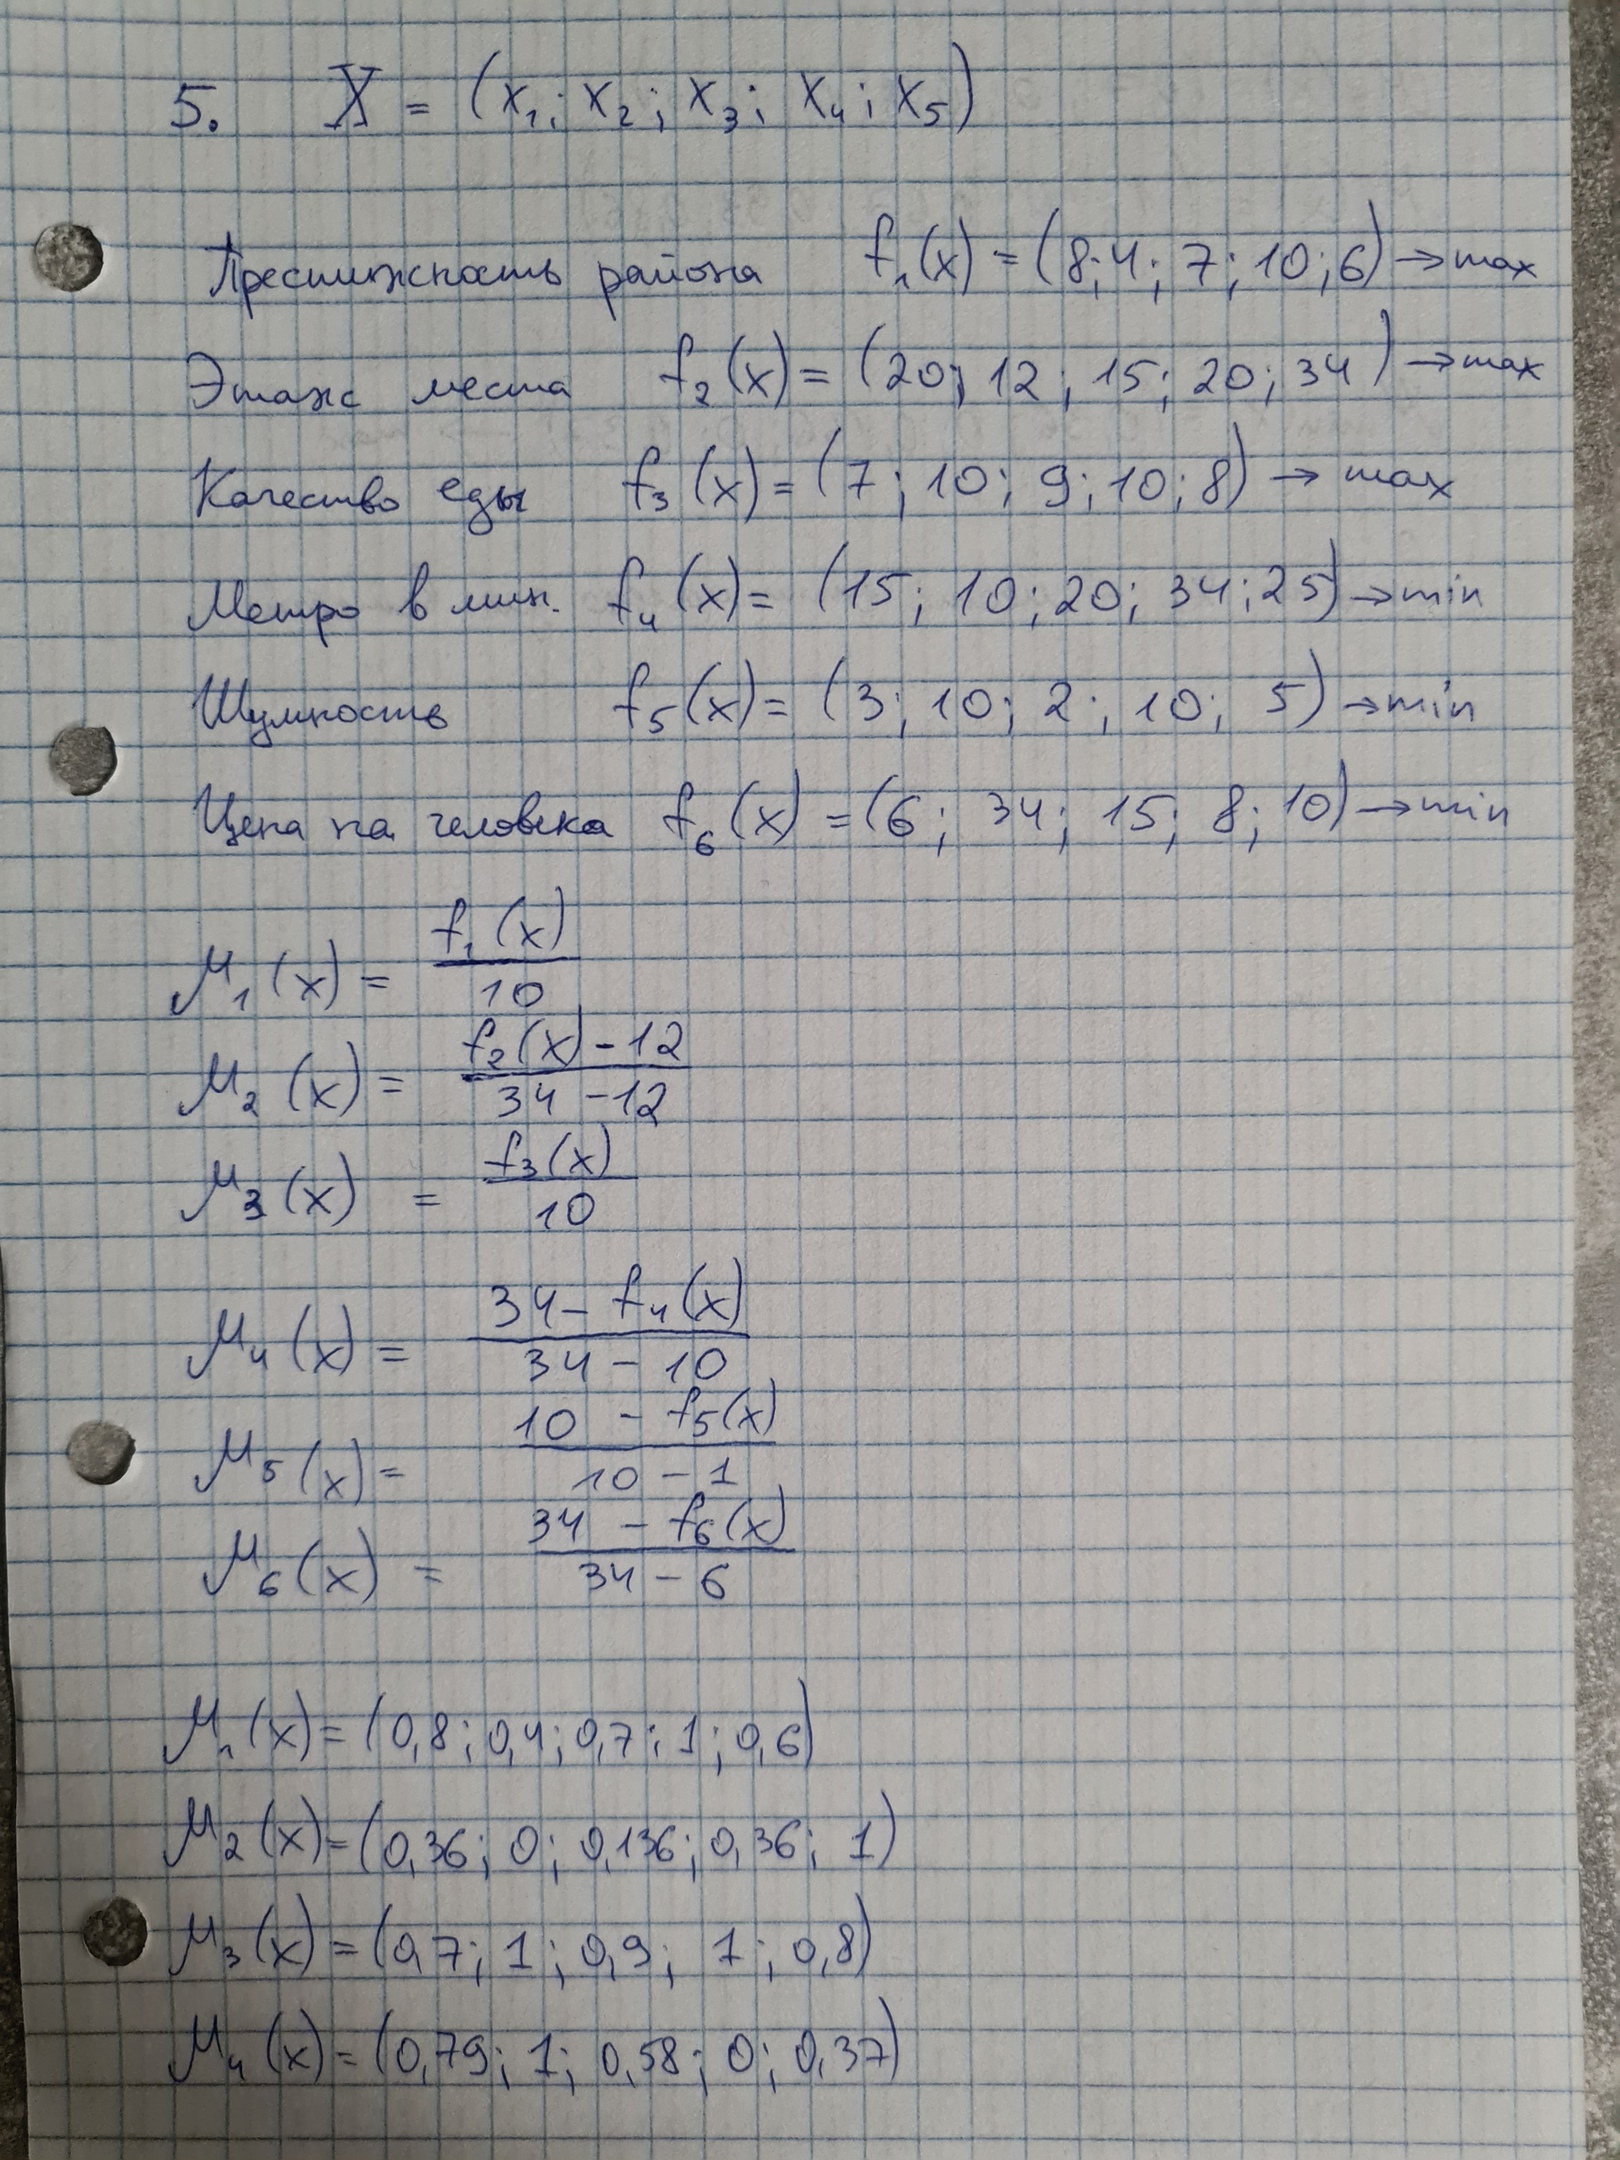 5. X = (x₁; x₂; x₃; x₄; x₅)
Престижность района f₁(x) = (8; 4; 7; 10; 6) → max
Этаж места f₂(x) = (20; 12; 15; 20; 34) → max
Качество еды f₃(x) = (7; 10; 9; 10; 8) → max
Метро в мин. f₄(x) = (15; 10; 20; 34; 25) → min
Шумность f₅(x) = (3; 10; 2; 10; 5) → min
Цена на человека f₆(x) = (6; 34; 15; 8; 10) → min
M₁(x) = f₁(x) / 10
M₂(x) = f₂(x) - 12 / 34 - 12
M₃(x) = f₃(x) / 10
M₄(x) = 34 - f₄(x) / 34 - 10
M₅(x) = 10 - f₅(x) / 10 - 1
M₆(x) = 34 - f₆(x) / 34 - 6
M₁(x) = (0,8; 0,4; 0,7; 1; 0,6)
M₂(x) = (0,36; 0; 0,136; 0,36; 1)
M₃(x) = (0,7; 1; 0,9; 1; 0,8)
M₄(x) = (0,79; 1; 0,58; 0; 0,37)